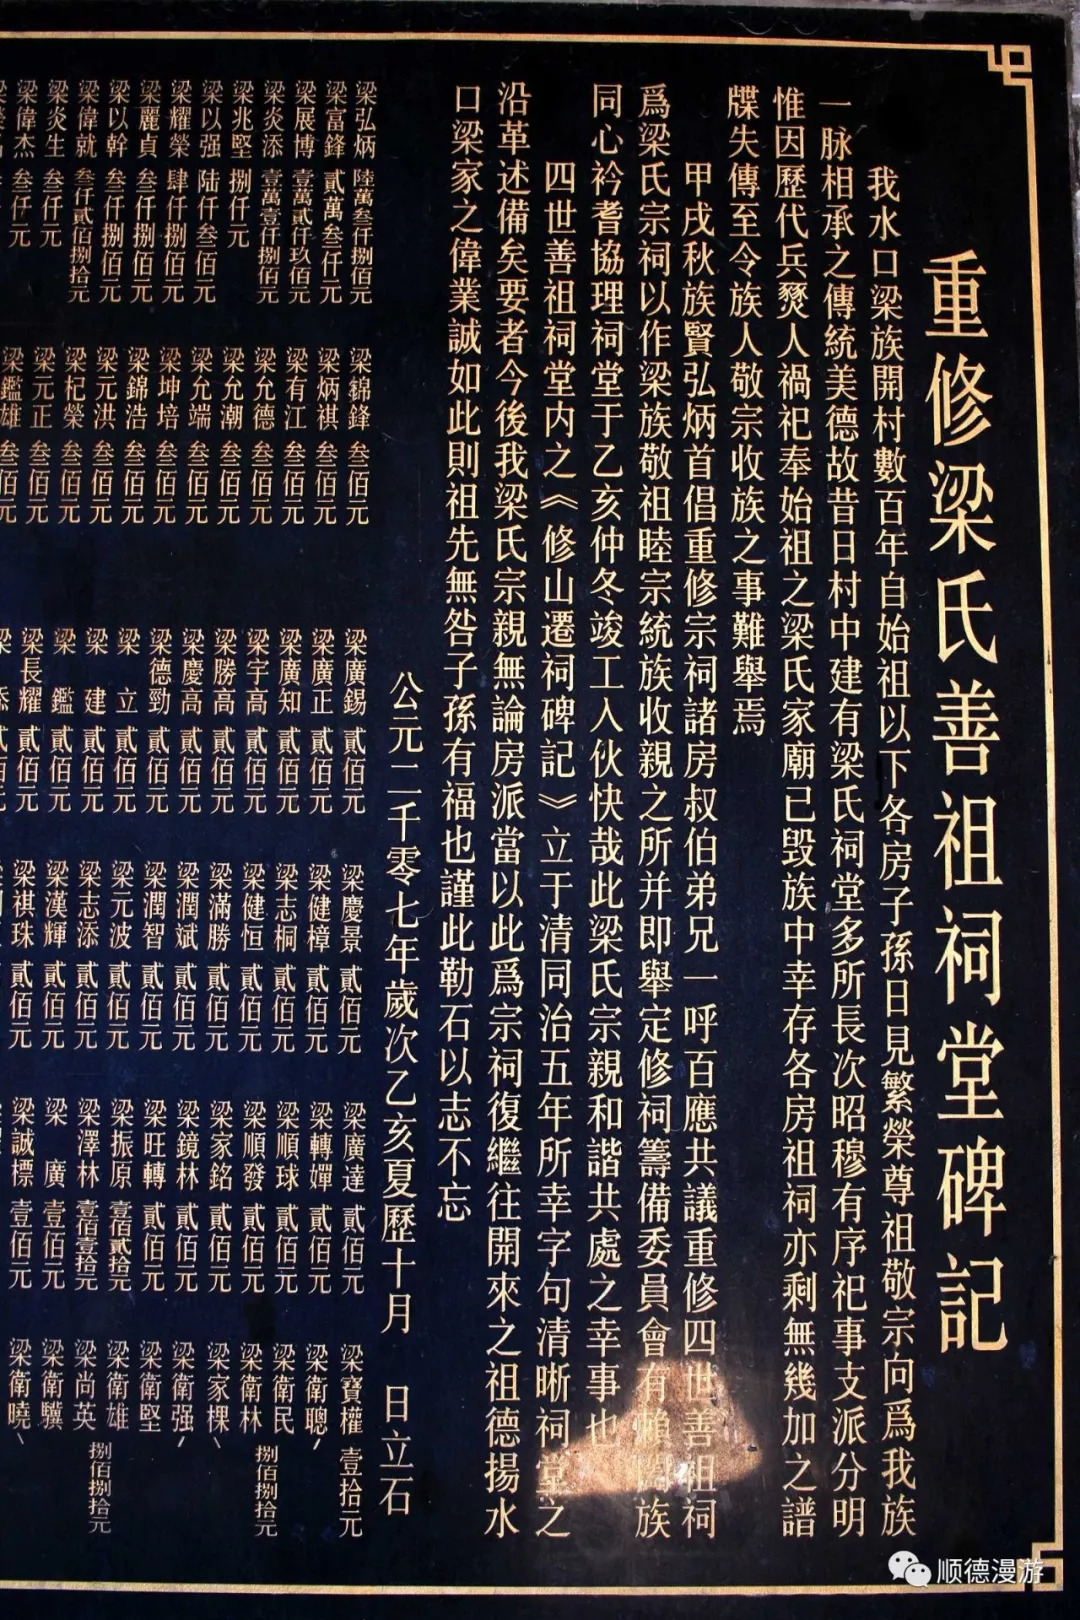 重修梁氏善祖祠堂碑記
我水口梁族開村數百年自始祖以下各房子孫日見繁榮尊祖敬宗向爲我族
一脉相承之傳統美德故昔日村中建有梁氏祠堂多所長次昭穆有序祀事支派分明
惟因歷代兵燹人禍祀奉始祖之梁氏家廟已毀族中幸存各房祖祠亦剩無幾加之譜
牒失傳至令族人敬宗收族之事難舉焉
甲戌秋族賢弘炳首倡重修宗祠諸房叔伯弟兄一呼百應共議重修四世善祖祠
爲梁氏宗祠以作梁族敬祖睦宗統族收親之所并即舉定修祠籌備委員會有賴閤族
同心衿耆協理祠堂于乙亥仲冬竣工入伙快哉此梁氏宗親和諧共處之幸事也
四世善祖祠堂内之《修山遷祠碑記》立于清同治五年所幸字句清晰祠堂之
沿革述備矣要者今後我梁氏宗親無論房派當以此爲宗祠復繼往開來之祖德揚水
口梁家之偉業誠如此則祖先無咎子孫有福也謹此勒石以志不忘
公元二千零七年歲次乙亥夏歷十月　日立石
梁弘炳 陸萬叁仟捌佰元
梁富鋒 貳萬叁仟元
梁展博 壹萬貳仟玖佰元
梁炎添 壹萬壹仟捌佰元
梁兆堅 捌仟元
梁以强 陆仟叁佰元
梁耀榮 肆仟捌佰元
梁麗貞 叁仟捌佰元
梁以幹 叁仟捌佰元
梁偉就 叁仟貳佰捌拾元
梁炎生 叁仟元
梁偉杰 叁仟元
梁錦鋒 叁佰元
梁炳祺 叁佰元
梁有江 叁佰元
梁允德 叁佰元
梁允潮 叁佰元
梁允端 叁佰元
梁坤培 叁佰元
梁錦浩 叁佰元
梁元洪 叁佰元
梁杞榮 叁佰元
梁元正 叁佰元
梁鑑雄 叁佰元
梁廣錫 貳佰元
梁廣正 貳佰元
梁廣知 貳佰元
梁宇高 貳佰元
梁勝高 貳佰元
梁慶高 貳佰元
梁德勁 貳佰元
梁　立 貳佰元
梁　建 貳佰元
梁　鑑 貳佰元
梁長耀 貳佰元
梁慶景 貳佰元
梁健樟 貳佰元
梁志桐 貳佰元
梁健恒 貳佰元
梁滿勝 貳佰元
梁潤斌 貳佰元
梁潤智 貳佰元
梁元波 貳佰元
梁志添 貳佰元
梁漢輝 貳佰元
梁祺珠 貳佰元
梁廣達 貳佰元
梁轉嬋 貳佰元
梁順球 貳佰元
梁順發 貳佰元
梁家銘 貳佰元
梁鏡林 貳佰元
梁旺轉 貳佰元
梁振原 壹佰貳拾元
梁澤林 壹佰壹拾元
梁　廣 壹佰元
梁誠標 壹佰元
梁寶權 壹拾元
梁衛聰
梁衛民
梁衛林 捌佰捌拾元
梁家棵
梁衛强
梁衛堅
梁衛雄
梁尚英 捌佰捌拾元
梁衛驥
梁衛曉
顺德漫游